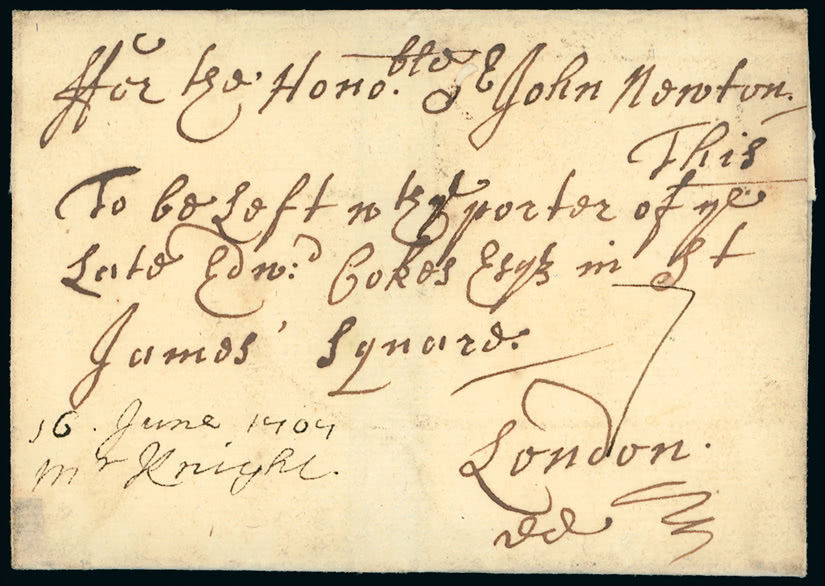 ffor the Hono.ble John Newton.
This
To be Left wth ye porter of ye
Late Edw:d Cokes Esqr in St
James' Square:
16. June 1707
mr Knight.
London.
dd